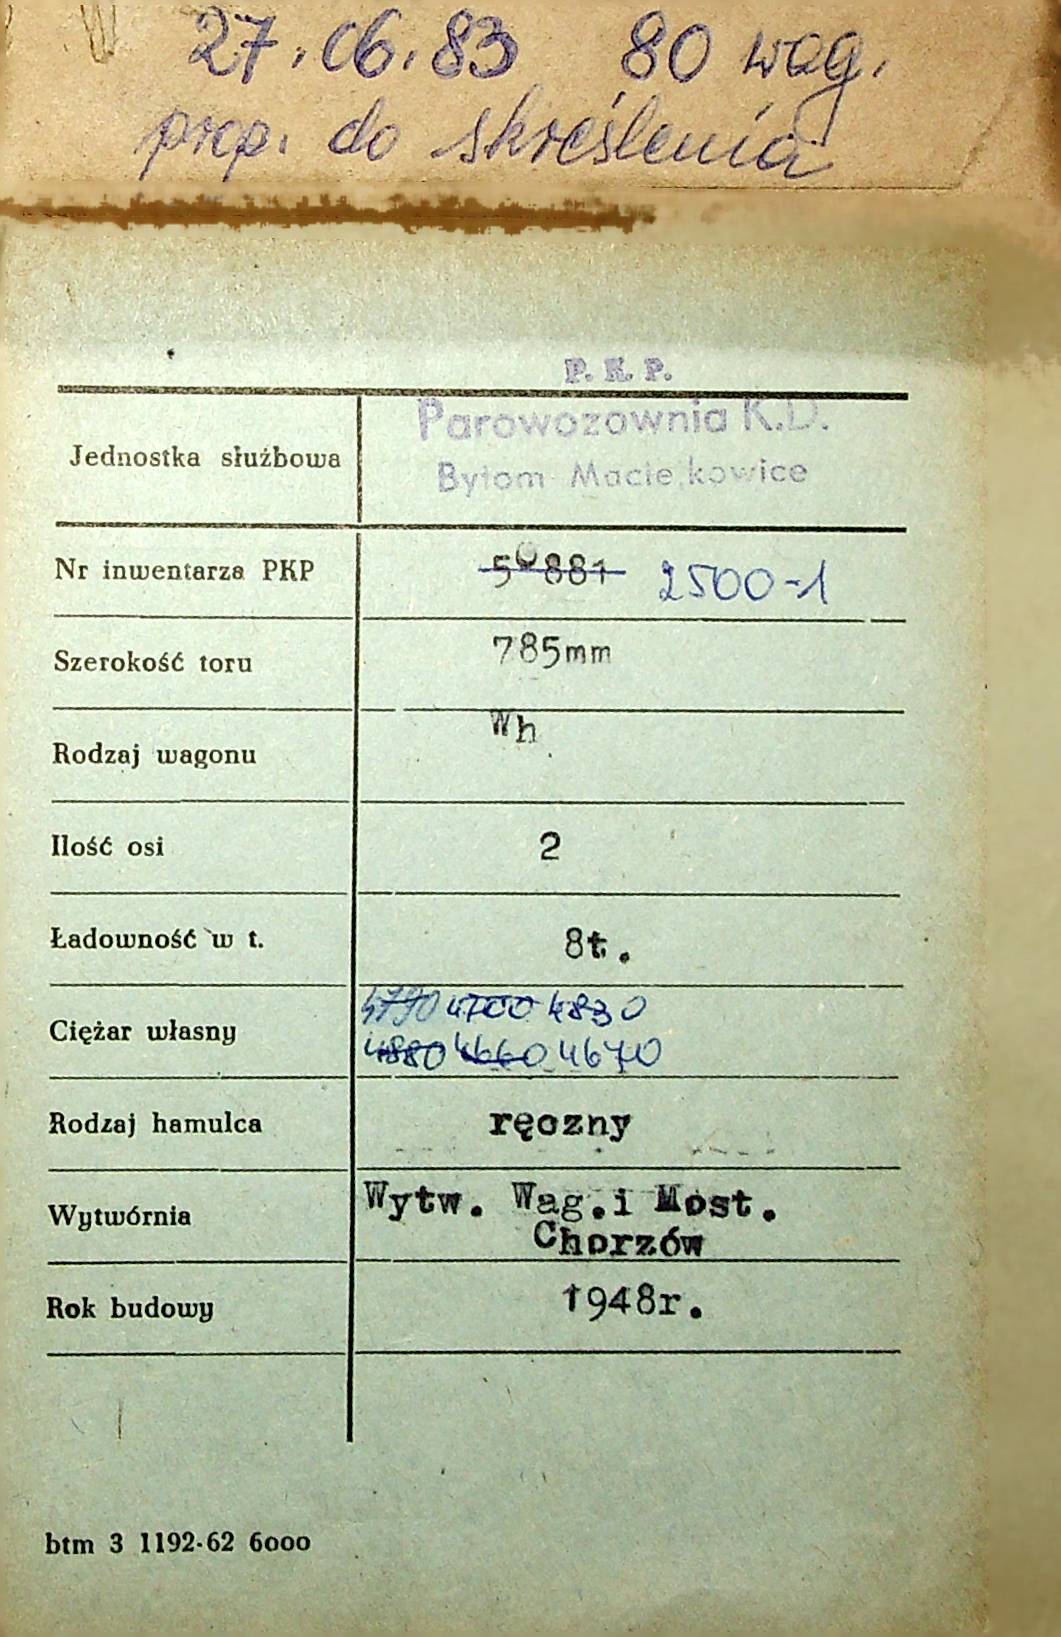 27.06.83 80 wag.
prop. do skreślenia
P. K. P.
Parowozownia K.D.
Jednostka służbowa
Bytom Maciejkowice
Nr inwentarza PKP 50881 2500-1
Szerokość toru 785mm
Rodzaj wagonu Wh
Ilość osi 2
Ładowność w t. 8t.
4790 4700 4830
Ciężar własny
4880 4660 4670
Rodzaj hamulca ręczny
Wytwórnia Wytw. Wag.i Most.
Chorzów
Rok budowy 1948r.
btm 3 1192-62 6000